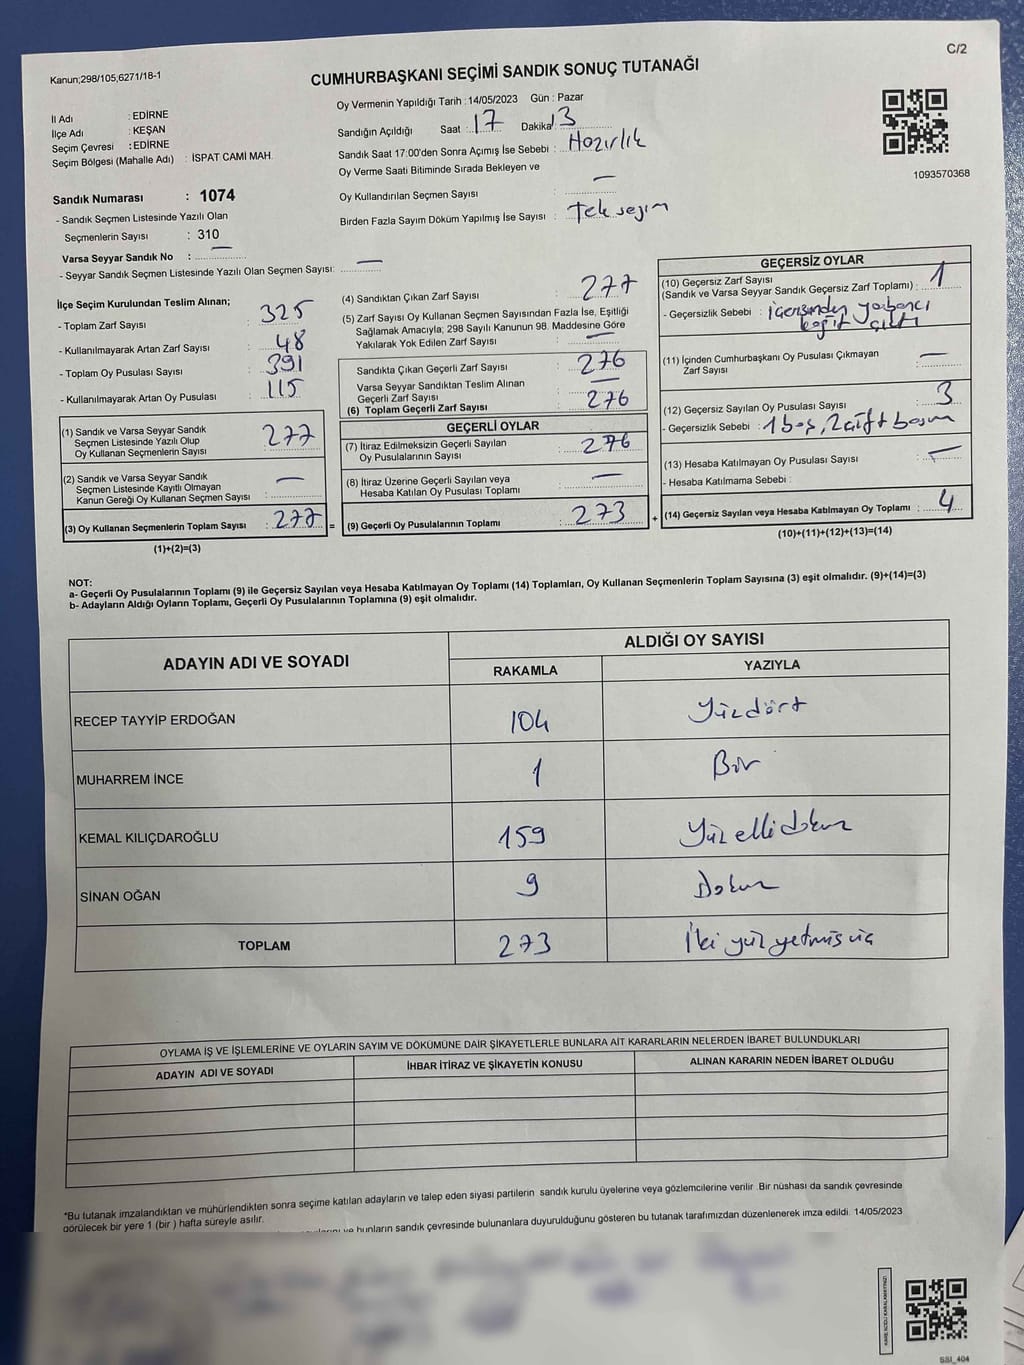 C/2
Kanun;298/105,6271/18-1
CUMHURBAŞKANI SEÇİMİ SANDIK SONUÇ TUTANAĞI
İl Adı : EDİRNE
İlçe Adı : KEŞAN
Seçim Çevresi : EDİRNE
Seçim Bölgesi (Mahalle Adı) : İSPAT CAMİ MAH.
Oy Vermenin Yapıldığı Tarih : 14/05/2023 Gün : Pazar
Sandığın Açıldığı Saat : 17 Dakika 13
Sandık Saat 17:00'den Sonra Açımış İse Sebebi : Hazırlık
Oy Verme Saati Bitiminde Sırada Bekleyen ve
Oy Kullandırılan Seçmen Sayısı : —
Birden Fazla Sayım Döküm Yapılmış İse Sayısı : Tek seçim
1093570368
Sandık Numarası : 1074
- Sandık Seçmen Listesinde Yazılı Olan
Seçmenlerin Sayısı : 310
Varsa Seyyar Sandık No : —
- Seyyar Sandık Seçmen Listesinde Yazılı Olan Seçmen Sayısı: —
İlçe Seçim Kurulundan Teslim Alınan;
- Toplam Zarf Sayısı : 325
- Kullanılmayarak Artan Zarf Sayısı : 48
- Toplam Oy Pusulası Sayısı : 391
- Kullanılmayarak Artan Oy Pusulası : 115
(1) Sandık ve Varsa Seyyar Sandık
Seçmen Listesinde Yazılı Olup
Oy Kullanan Seçmenlerin Sayısı : 277
(2) Sandık ve Varsa Seyyar Sandık
Seçmen Listesinde Kayıtlı Olmayan
Kanun Gereği Oy Kullanan Seçmen Sayısı : —
(3) Oy Kullanan Seçmenlerin Toplam Sayısı : 277 =
(1)+(2)=(3)
(4) Sandıktan Çıkan Zarf Sayısı : 277
(5) Zarf Sayısı Oy Kullanan Seçmen Sayısından Fazla İse, Eşitliği
Sağlamak Amacıyla; 298 Sayılı Kanunun 98. Maddesine Göre
Yakılarak Yok Edilen Zarf Sayısı : —
Sandıkta Çıkan Geçerli Zarf Sayısı : 276
Varsa Seyyar Sandıktan Teslim Alınan
Geçerli Zarf Sayısı : —
(6) Toplam Geçerli Zarf Sayısı : 276
GEÇERLİ OYLAR
(7) İtiraz Edilmeksizin Geçerli Sayılan
Oy Pusulalarının Sayısı : 276
(8) İtiraz Üzerine Geçerli Sayılan veya
Hesaba Katılan Oy Pusulası Toplamı : —
(9) Geçerli Oy Pusulalarının Toplamı : 273 +
GEÇERSİZ OYLAR
(10) Geçersiz Zarf Sayısı
(Sandık ve Varsa Seyyar Sandık Geçersiz Zarf Toplamı) : 1
- Geçersizlik Sebebi : içerisinden yabancı
kağıt çıktı
(11) İçinden Cumhurbaşkanı Oy Pusulası Çıkmayan
Zarf Sayısı : —
(12) Geçersiz Sayılan Oy Pusulası Sayısı : 3
- Geçersizlik Sebebi : 1 boş, 2 çift basım
(13) Hesaba Katılmayan Oy Pusulası Sayısı : —
- Hesaba Katılmama Sebebi :
(14) Geçersiz Sayılan veya Hesaba Katılmayan Oy Toplamı : 4
(10)+(11)+(12)+(13)=(14)
NOT:
a- Geçerli Oy Pusulalarının Toplamı (9) ile Geçersiz Sayılan veya Hesaba Katılmayan Oy Toplamı (14) Toplamları, Oy Kullanan Seçmenlerin Toplam Sayısına (3) eşit olmalıdır. (9)+(14)=(3)
b- Adayların Aldığı Oyların Toplamı, Geçerli Oy Pusulalarının Toplamına (9) eşit olmalıdır.
ADAYIN ADI VE SOYADI
ALDIĞI OY SAYISI
RAKAMLA YAZIYLA
RECEP TAYYİP ERDOĞAN 104 Yüzdört
MUHARREM İNCE 1 Bir
KEMAL KILIÇDAROĞLU 159 Yüz elli dokuz
SİNAN OĞAN 9 Dokuz
TOPLAM 273 İki yüz yetmiş üç
OYLAMA İŞ VE İŞLEMLERİNE VE OYLARIN SAYIM VE DÖKÜMÜNE DAİR ŞİKAYETLERLE BUNLARA AİT KARARLARIN NELERDEN İBARET BULUNDUKLARI
ADAYIN ADI VE SOYADI İHBAR İTİRAZ VE ŞİKAYETİN KONUSU ALINAN KARARIN NEDEN İBARET OLDUĞU
*Bu tutanak imzalandıktan ve mühürlendikten sonra seçime katılan adayların ve talep eden siyasi partilerin sandık kurulu üyelerine veya gözlemcilerine verilir. Bir nüshası da sandık çevresinde
görülecek bir yere 1 (bir ) hafta süreyle asılır.
ve bunların sandık çevresinde bulunanlara duyurulduğunu gösteren bu tutanak tarafımızdan düzenlenerek imza edildi. 14/05/2023
SSI_404